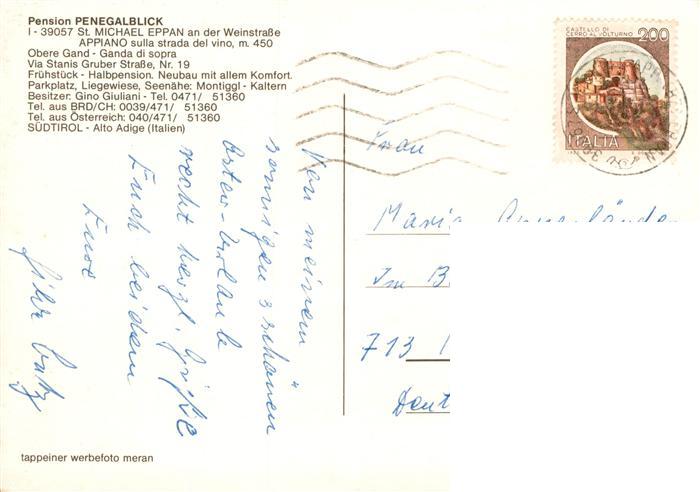 Pension PENEGALBLICK
I - 39057 St. MICHAEL EPPAN an der Weinstraße
APPIANO sulla strada del vino, m. 450
Obere Gand - Ganda di sopra
Via Stanis Gruber Straße, Nr. 19
Frühstück - Halbpension. Neubau mit allem Komfort.
Parkplatz, Liegewiese, Seenähe: Montiggl - Kaltern
Besitzer: Gino Giuliani - Tel. 0471/ 51360
Tel. aus BRD/CH: 0039/471/ 51360
Tel. aus Österreich: 040/471/ 51360
SÜDTIROL - Alto Adige (Italien)
Von meinem
sonnigen u schönen
Oster-Urlaub
recht herzl. Grüße
Euch beiden
Eure
tappeiner werbefoto meran
CASTELLO DI
CERRO AL VOLTURNO
200
ITALIA
Frau
Maria
Im B
713